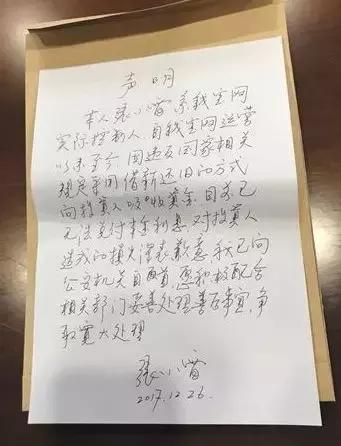 声明
本人张小雷系钱宝网
实际控制人，自钱宝网运营
以来至今 因违反国家相关
规定采用借新还旧的方式
向投资人吸收资金 目前已
无法兑付本金利息 对投资人
造成的损失深表歉意，我已向
公安机关自首，愿积极配合
相关部门妥善处理善后事宜，争
取宽大处理
张小雷
2017.12.26.